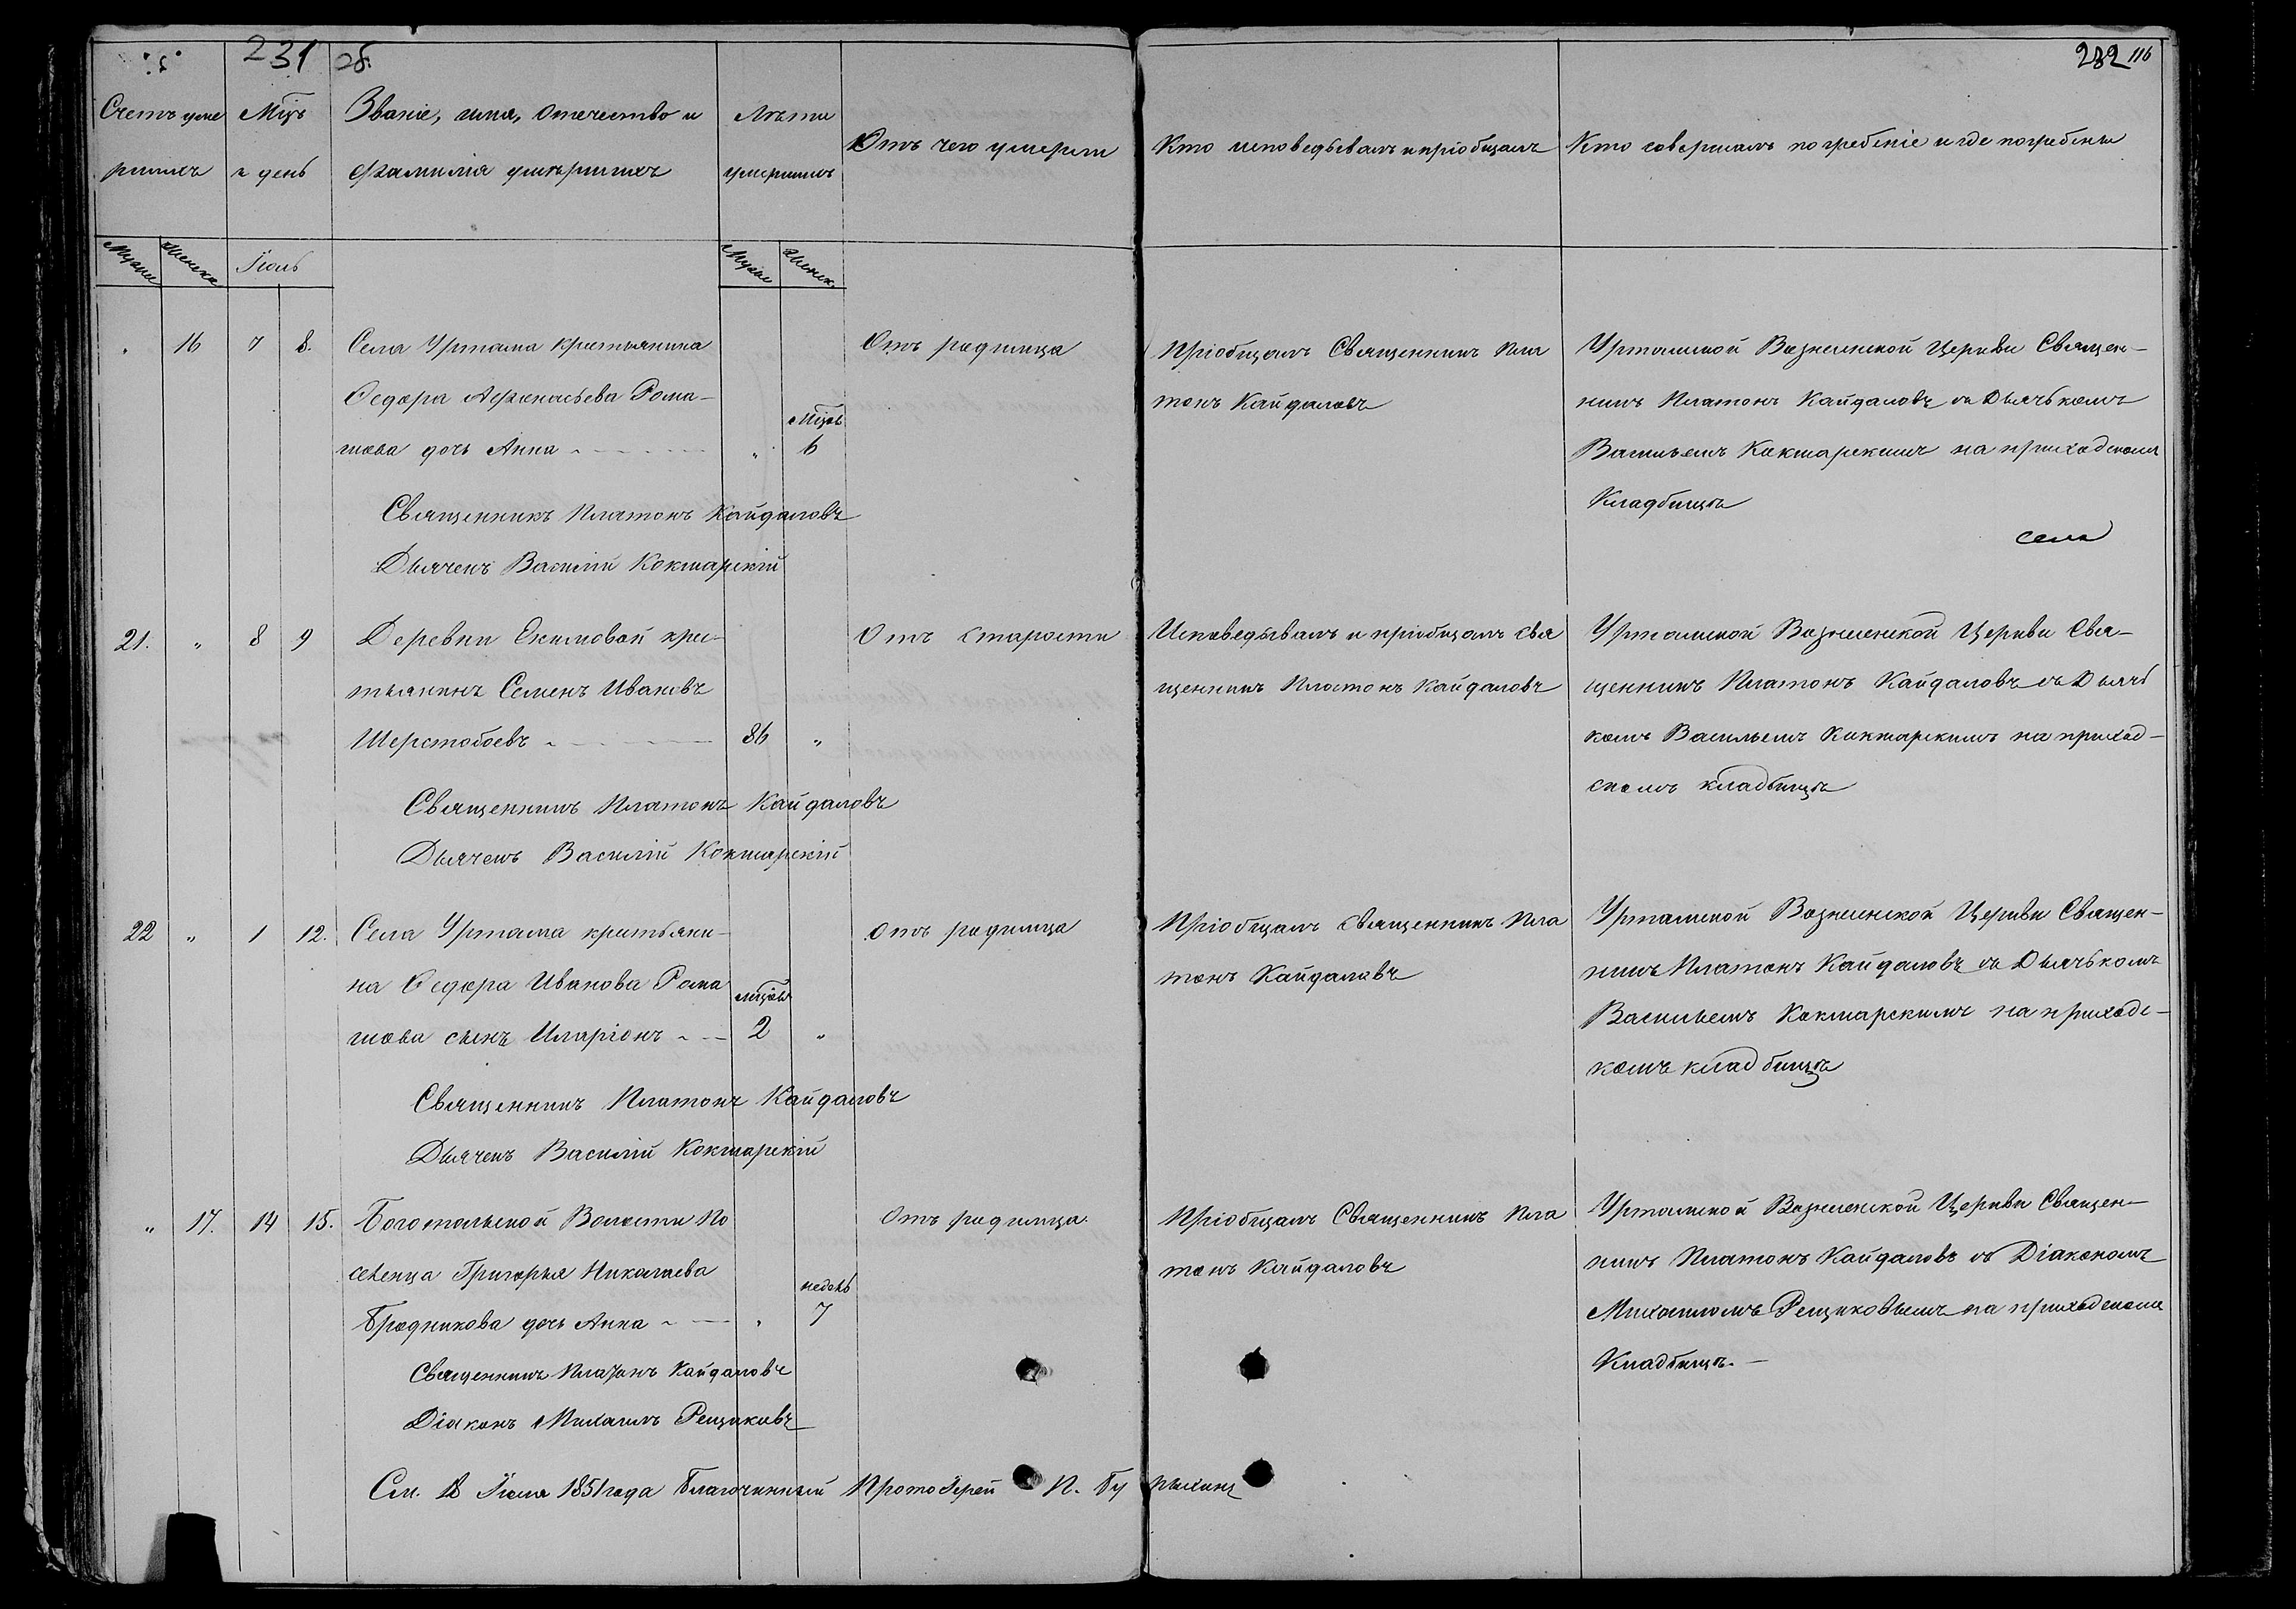 231 об.
282 116
Счетъ уме
рших
Мцъ
и день
Званіе, имя, отечество и
фамилія умершихъ
Лѣта
умершихъ
Отъ чего умерли
Кто исповедывалъ и пріобщалъ
Кто совершалъ погребеніе и где погребены
Мужск
Женска
Іюль
Мужск
Женск.
„ 16 7 8.
Села Уртама крестьянина
Ѳедора Афонасьева Рома-
шова дочь Анна
„ Мцовъ 6
Отъ родимца
Пріобщалъ Священникъ Пла
тонъ Кайдаловъ
Уртамской Вознесенской Церкви Священ-
никъ Платонъ Кайдаловъ съ Дьячькомъ
Васильемъ Кокшарскимъ на приходскомъ
Кладбищѣ
села
Священникъ Платонъ Кайдаловъ
Дьячекъ Василій Кокшарскій
21. „ 8 9
Деревни Екимовой кре-
стьянинъ Семенъ Ивановъ
Шерстобоевъ
86 „
Отъ старости
Исповедывалъ и пріобщалъ Свя
щенникъ Платонъ Кайдаловъ
Уртамской Вознесенской Церкви Свя-
щенникъ Платонъ Кайдаловъ съ Дьячь
комъ Васильемъ Кокшарскимъ на приход-
скомъ кладбищѣ
Священникъ Платонъ Кайдаловъ
Дьячекъ Василій Кокшарскій
22 „ 1 12.
Села Уртама крестьяни-
на Ѳедора Иванова Рома
шова сынъ Иларіонъ
мцовъ 2 „
Отъ родимца
Пріобщалъ Священникъ Пла
тонъ Кайдаловъ
Уртамской Вознесенской Церкви Священ-
никъ Платонъ Кайдаловъ съ Дьячькомъ
Васильемъ Кокшарскимъ на приходс-
комъ кладбищѣ
Священникъ Платонъ Кайдаловъ
Дьячекъ Василій Кокшарскій
„ 17. 14 15.
Боготольской Волости По
селенца Григорья Николаева
Бродникова дочь Анна
„ недель 7
Отъ родимца.
Пріобщалъ Священникъ Пла
тонъ Кайдаловъ
Уртамской Вознесенской Церкви Священ-
никъ Платонъ Кайдаловъ съ Діакономъ
Михаиломъ Рещиковымъ на приходскомъ
Кладбищѣ.
Священникъ Платонъ Кайдаловъ
Діаконъ Михаилъ Рещиковъ
См. 18 Іюля 1851 года Благочинный Протоіерей П.